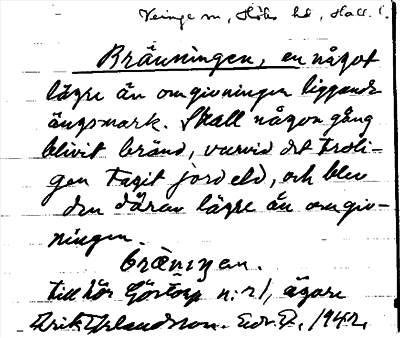 Veinge sn, Höks hd, Hall. l.
Bränningen, en något
lägre än omgivningen liggande
ängsmark. Skall någon gång
blivit bränd, varvid det troli-
gen tagit jordeld, och blev
den därav lägre än omgiv-
ningen.
Tillhör Göstorp n:r 1, ägare
Erik Erlandsson. 1942.